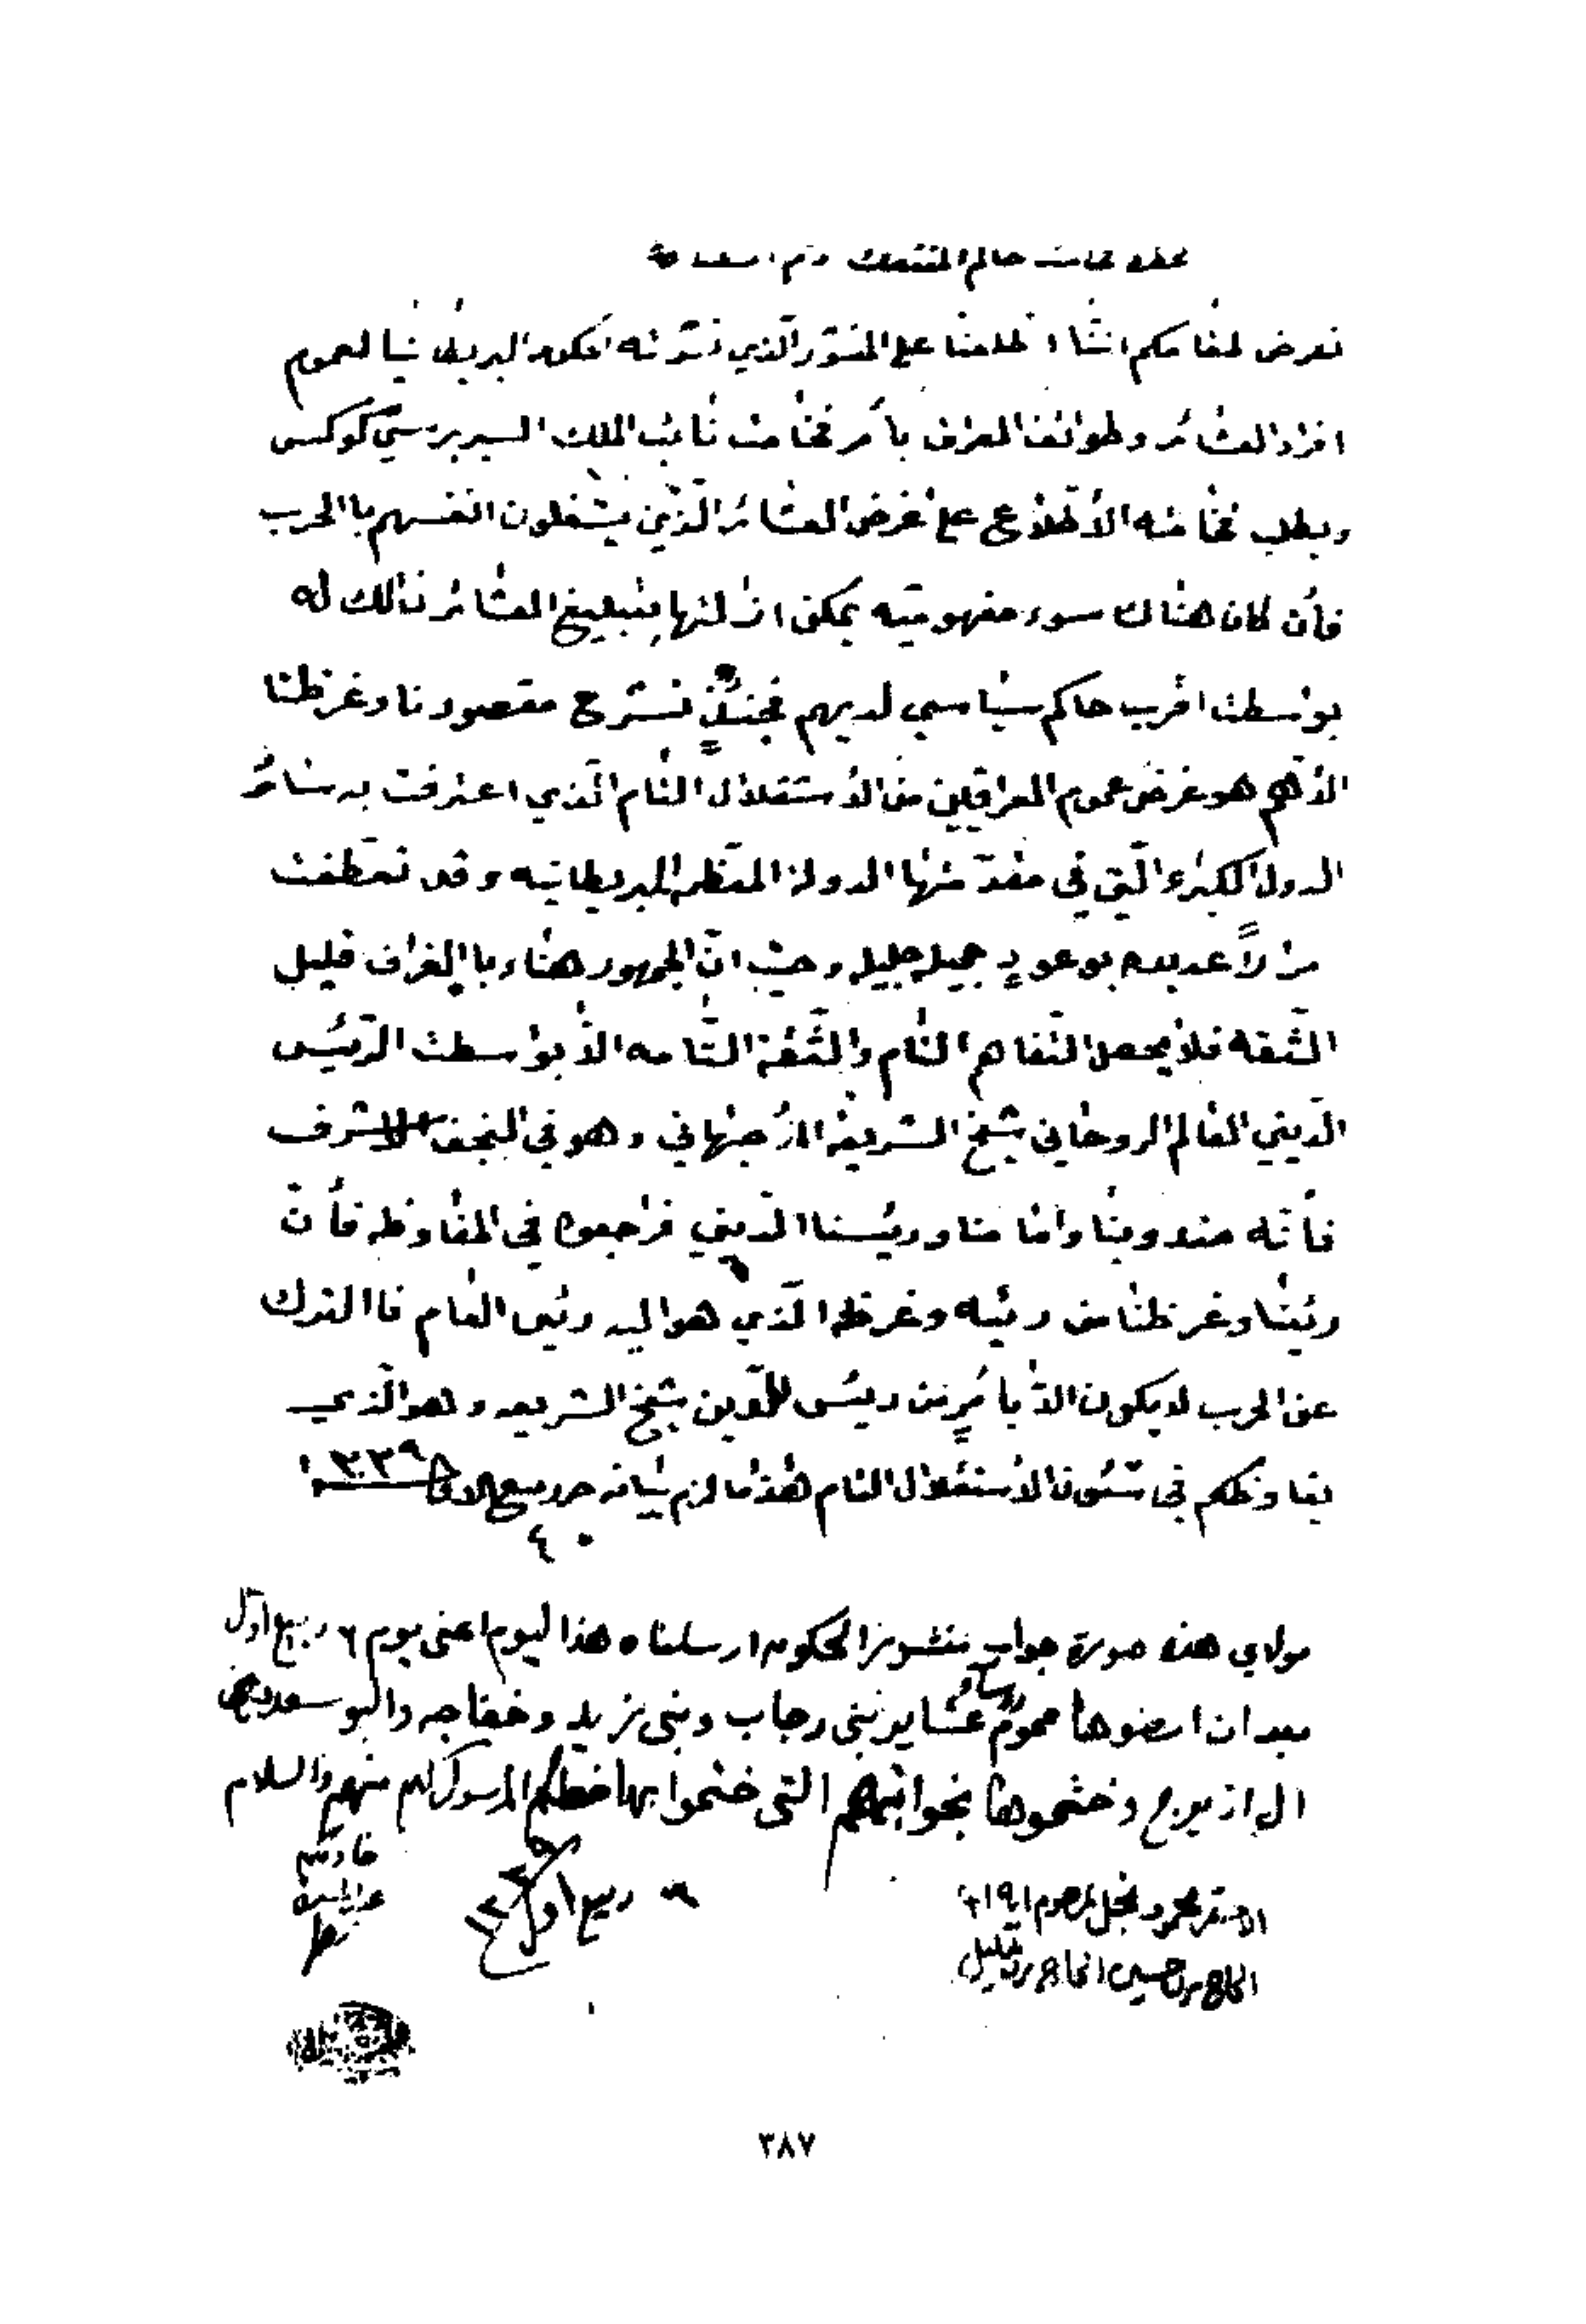 حاكم المنتفك دام
نعرض لمقامكم اننا اطلعنا على المنشور الذي نشرته الحكومه البريطانيا لعموم
افراد العشائر وطوائف العراق بأمر فخامت نائب الملك السير برسي كوكس
ويطلب فخامته الأطلاع على غرض العشائر الذين يشغلون انفسهم باالحرب
فأن كان هناك سوء مفهوميّه يمكن ازالتها بتبليغ العشائر ذالك له
بواسطة اقرب حاكم سياسي لديهم فحينئذٍ نشرح مقصودنا وغرظنا
الأهم هو غرض عموم العراقيين من الأستقلال التام الّذي اعترفت به سائر
الدول الكبراء الّتي في مقدّمتها الدولة المعظمه البريطانيّه وقد تعطفت
مراراً عديده بوعودٍ جميله جليله وحيث انّ الجمهور هنا وباالغراف قليل
الثّقه فلا يحصل التّفاهم التام والثّقة التّامه الاّ بواسطت الرّئيس
الدّيني العالم الروحاني شيخ الشريعة الأصبهاني وهو في النجف الاشرف
فأنّه مندوبنا وامامنا ورئيسنا الدّيني فراجعوه في المفاوظه فأنّ
رئينا وغرظنا من رئيه وغرظه الّذي هو اليه رئي العام فاالترك
عن الحرب لا يكون الاّ بأمرٍ من رئيس الدّين شيخ الشريعه وهو الّذي
يفاوظكم في شئون الأستقلال التام هذا ما لزم بيانه حرر ربيع الاول ١٣٣٩
٤
مولاي هذه صورة جواب منشور الحكومه ارسلناه هذا اليوم اعني يوم ٦ ربيع اول
بعد ان امضوها عموم رؤساء عشاير بني رجاب وبني زيد وخفاجه والبو سعد
ال ازيرج وختموها بخواتيمهم التي ختموا بها خطكم المرسول لهم منهم والسلام
خادمكم
ربيع اول
٣٨٧